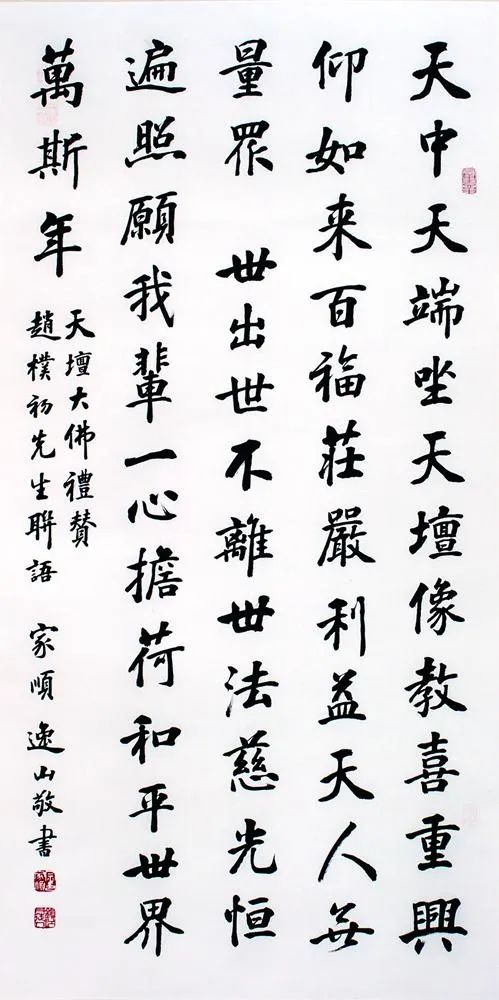 天中天端坐天壇像教喜重興
仰如来百福莊嚴利益天人無
量眾 世出世不離世法慈光恒
遍照願我輩一心擔荷和平世界
萬斯年
天壇大佛禮贊
趙樸初先生聯語 家順 逸山敬書